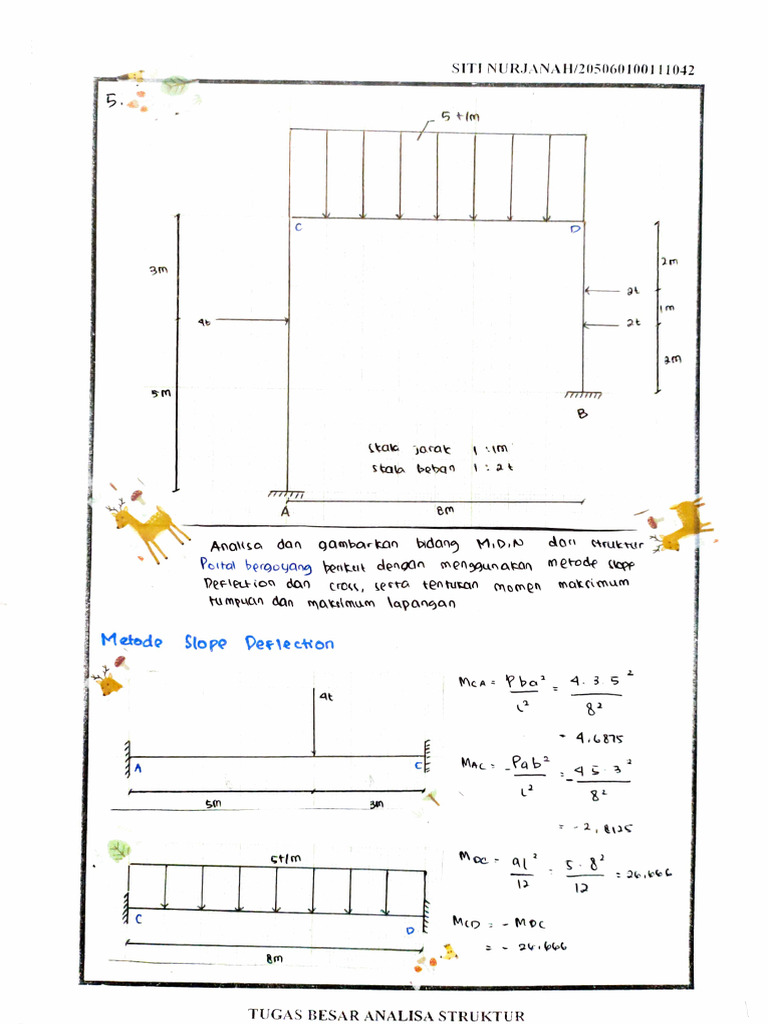 SITI NURJANAH/205060100111042
5.
5 t/m
C
D
3m
2m
2t
4t
1m
2t
2m
5m
B
Skala jarak 1 : 1m
Skala beban 1 : 2t
A
8m
Analisa dan gambarkan bidang M,D,N dari struktur
Portal bergoyang berikut dengan menggunakan metode slope
Deflection dan cross, serta tentukan momen maksimum
tumpuan dan maksimum lapangan
Metode Slope Deflection
4t
A
C
5m
3m
MCA = Pba² / L² = 4.3.5² / 8²
= 4,6875
MAC = -Pab² / L² = -4 5.3² / 8²
= -2,8125
5t/m
C
D
8m
MDC = ql² / 12 = 5.8² / 12 = 26,666
MCD = - MDC
= - 26,666
TUGAS BESAR ANALISA STRUKTUR